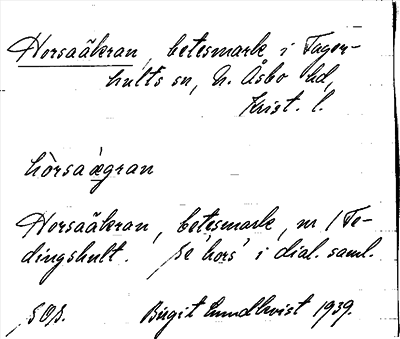 Horsaäkran, betesmark i Tager-
hults sn, N. Åsbo hd,
Krist. l.
hòrsaǽgran
Horsaäkran, betesmark, nr 1 Te-
dingshult. Se 'hors' i dial. saml.
Birgit Lundkvist 1939.